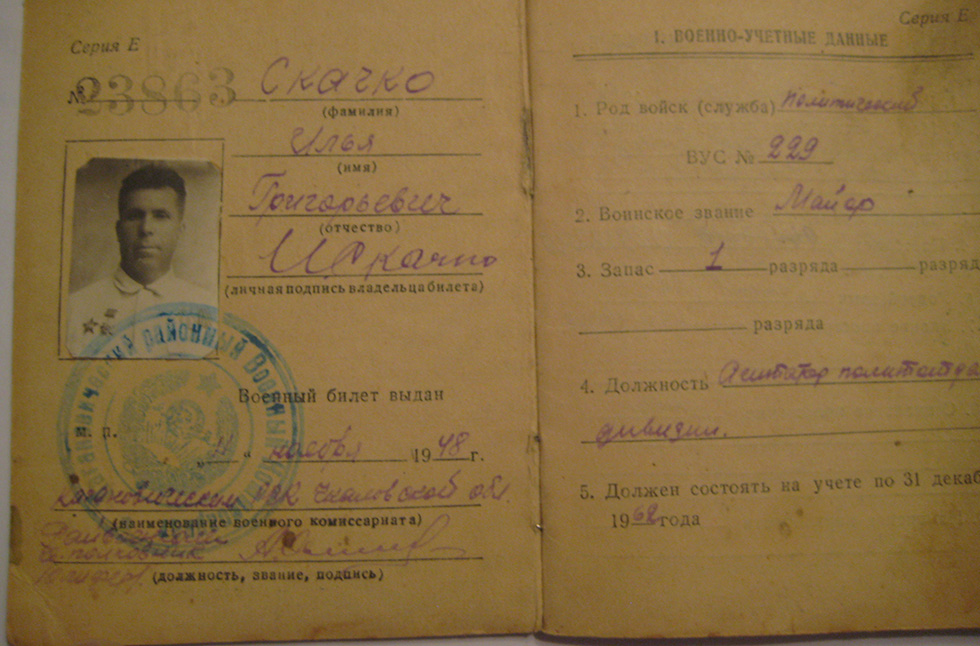 Серия Е
№ 23863
Скачко
(фамилия)
Илья
(имя)
Григорьевич
(отчество)
ИСкачко
(личная подпись владельца билета)
РАЙОННЫЙ ВОЕННЫЙ
Военный билет выдан
М. П.
„11“ ноября 1948 г.
Кагановическим РВК Чкаловской обл.
(наименование военного комиссариата)
полковник
(должность, звание, подпись)
Серия Е
I. ВОЕННО-УЧЕТНЫЕ ДАННЫЕ
1. Род войск (служба) политический
ВУС № 229
2. Воинское звание Майор
3. Запас 1 разряда разряд
разряда
4. Должность Агитатор политотдела
дивизии.
5. Должен состоять на учете по 31 декаб
1968 года